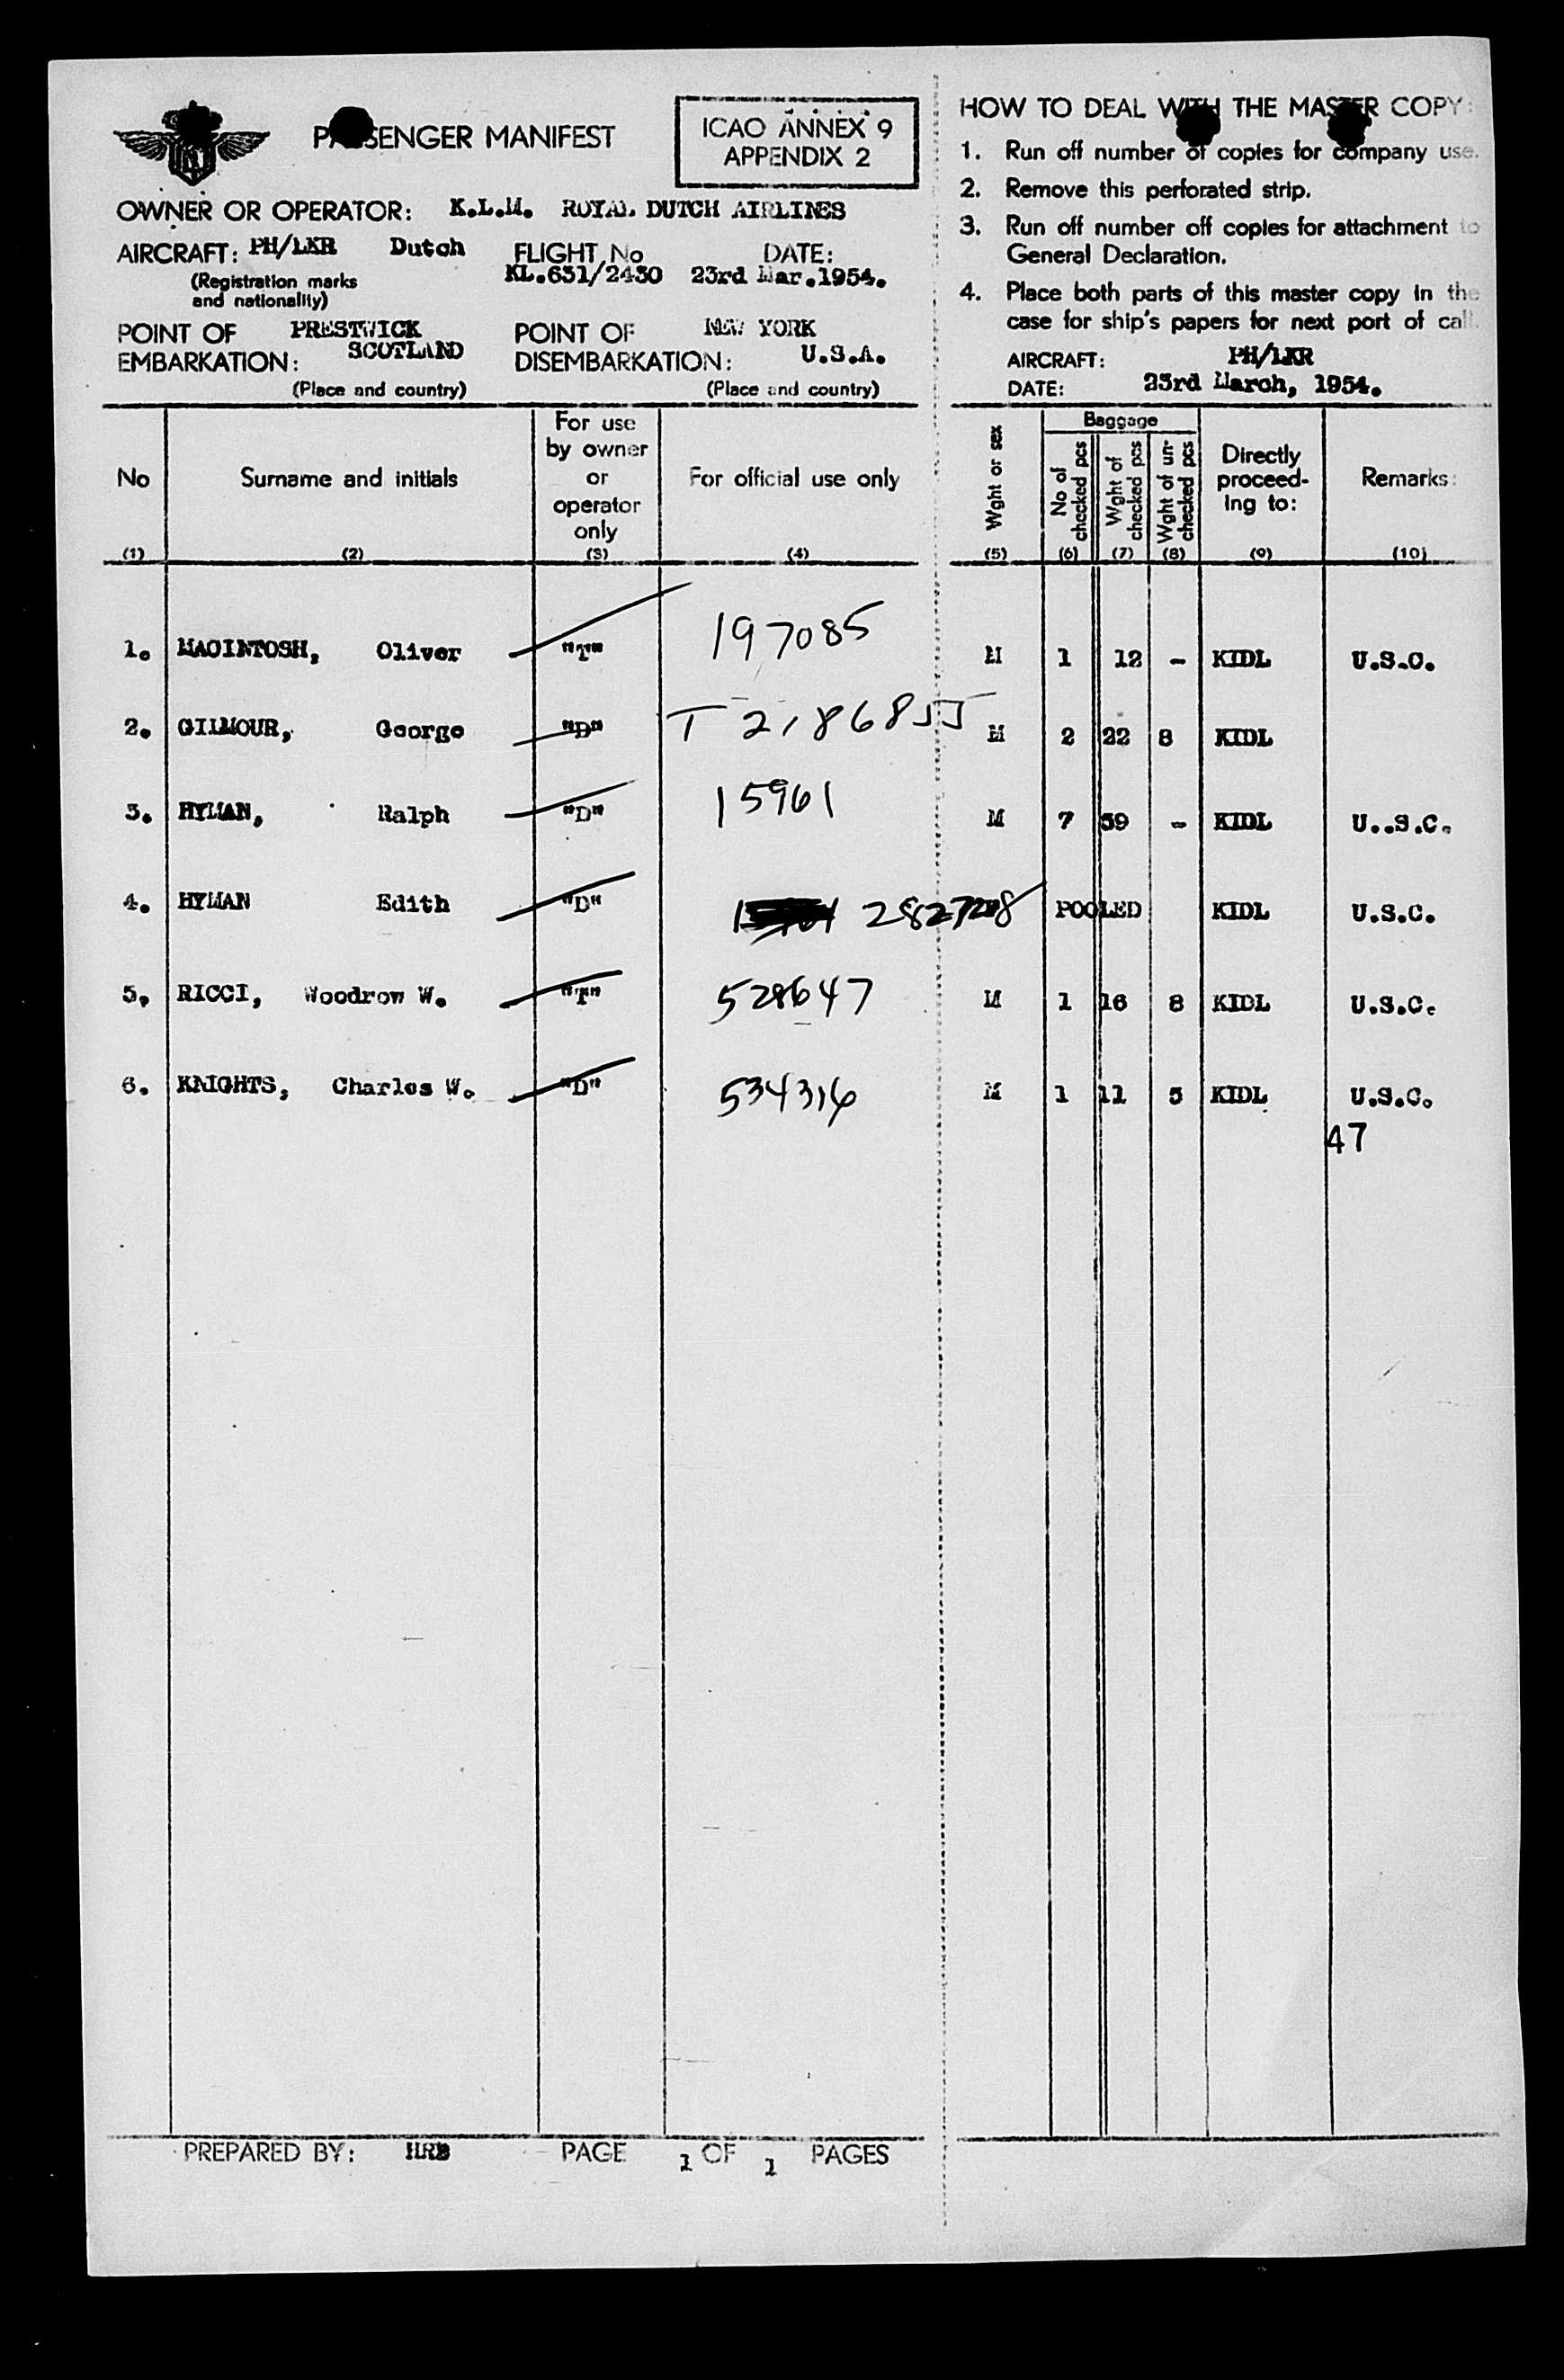 PASSENGER MANIFEST
ICAO ANNEX 9
APPENDIX 2
OWNER OR OPERATOR: K.L.M. ROYAL DUTCH AIRLINES
AIRCRAFT: PH/LKR Dutch FLIGHT No DATE:
(Registration marks KL.631/2430 23rd Mar.1954.
and nationality)
POINT OF PRESTWICK POINT OF NEW YORK
EMBARKATION: SCOTLAND DISEMBARKATION: U.S.A.
(Place and country) (Place and country)
HOW TO DEAL WITH THE MASTER COPY:
1. Run off number of copies for company use.
2. Remove this perforated strip.
3. Run off number off copies for attachment to
General Declaration.
4. Place both parts of this master copy in the
case for ship's papers for next port of call.
AIRCRAFT: PH/LKR
DATE: 23rd March, 1954.
No
(1)
Surname and initials
(2)
For use
by owner
or
operator
only
(3)
For official use only
(4)
Wght or sex
(5)
Baggage
No of
checked pcs
(6)
Wght of
checked pcs
(7)
Wght of un-
checked pcs
(8)
Directly
proceed-
ing to:
(9)
Remarks:
(10)
1. MACINTOSH, Oliver "T" 197085 M 1 12 - KIDL U.S.C.
2. GILMOUR, George "D" T 2186855 M 2 22 8 KIDL
3. HYMAN, Ralph "D" 15961 M 7 59 - KIDL U..S.C.
4. HYMAN Edith "D" 282728 POOLED KIDL U.S.C.
5. RICCI, Woodrow W. "T" 528647 M 1 16 8 KIDL U.S.C.
6. KNIGHTS, Charles W. "D" 534316 M 1 11 5 KIDL U.S.C.
47
PREPARED BY: HRB PAGE 1 OF 1 PAGES